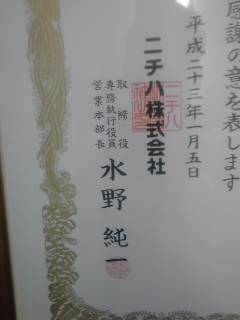 感謝の意を表します
平成二十三年一月五日
ニチハ株式会社
取締役
専務執行役員
営業本部長
水野純一